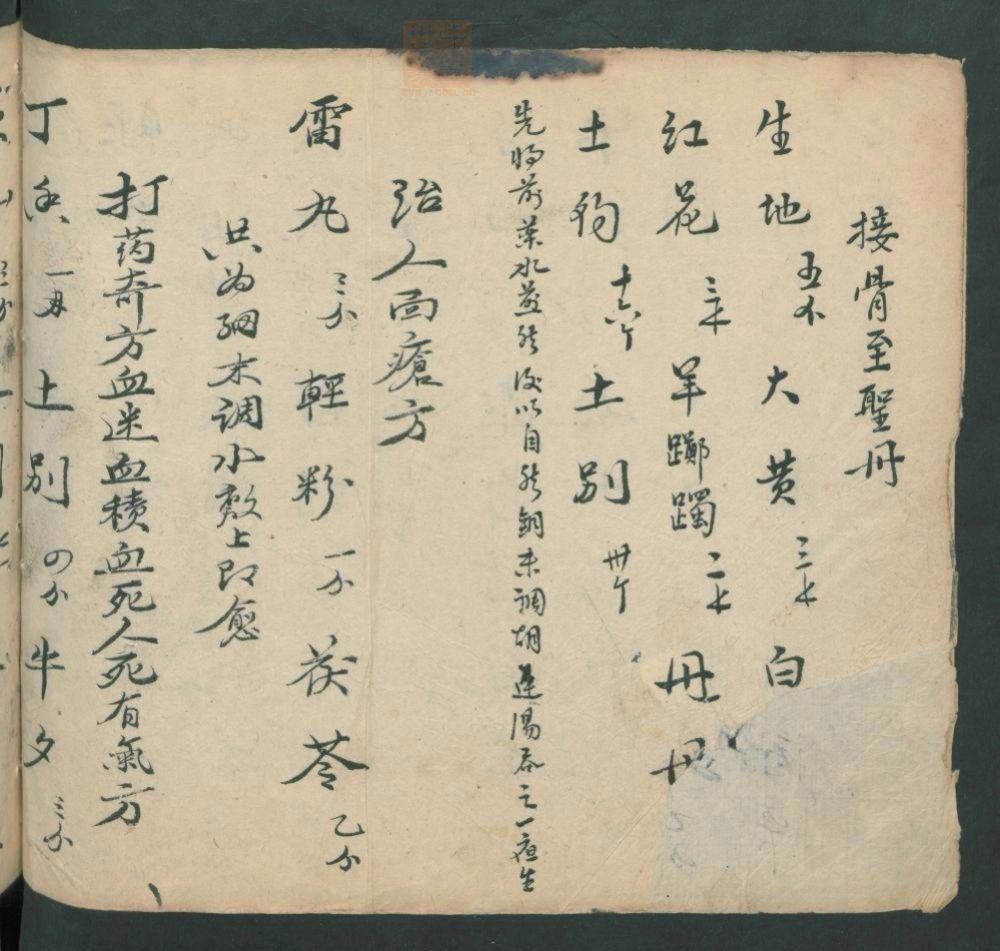 接骨至聖丹
生地 五 大黄 三 白
红花 三 羊躑躅 二 丹
土狗 十六个 土别 卅个
先将前藥水並然後以自然銅末調胡 湯吞之一 生
治人面瘡方
雷丸 三分 輕粉 一分 茯苓 乙分
共为細末調水敷上即愈
打药奇方血迷血積血死人死有氣方
丁香 一 土别 四分 牛夕 三分